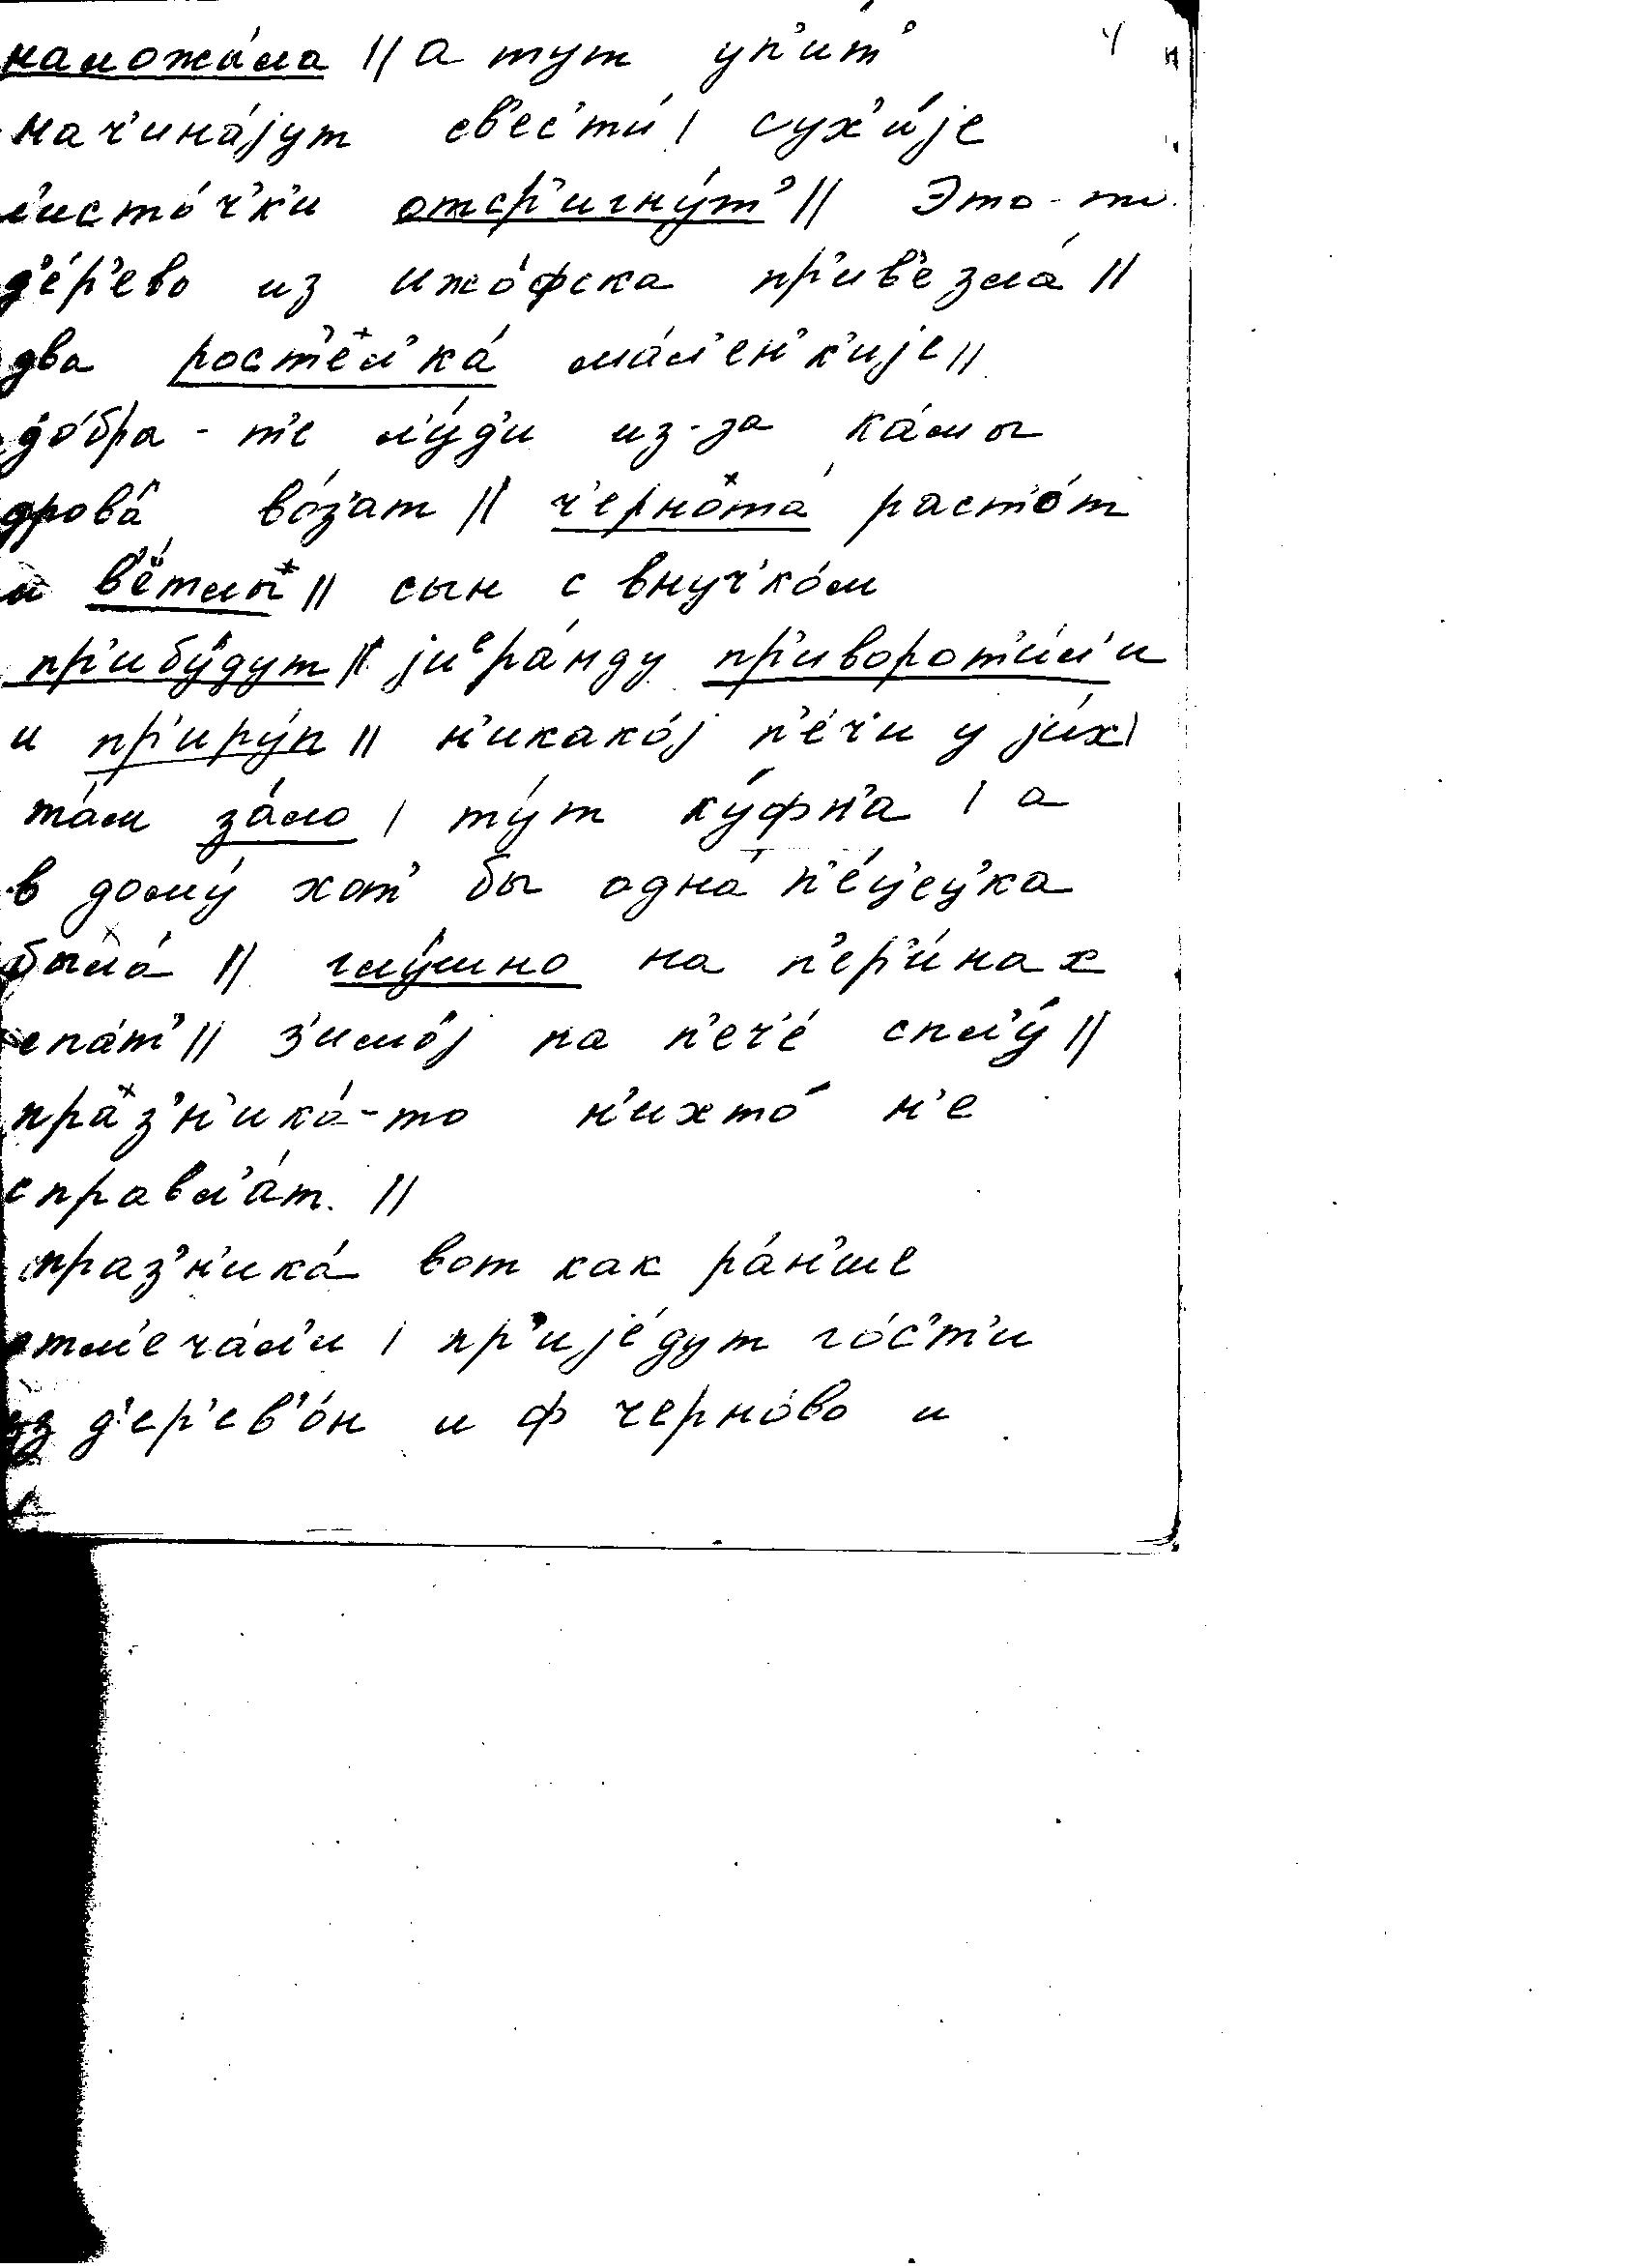 4
наложы́ла || а тут уп'а́т'
нач'ина́jут св'ес'т'и́ | сух'и́je
л'исто́ч'к'и отср'игну́т' || Это-то
д'е́р'ево из ижо́фска пр'ив'езла́ ||
два рост'ел'ка́ ма́л'ен'к'иje ||
до́бра-т'е л'у́д'и из-за ка́мы
дрова́ во́з'ат || ч'ернота́ раст'о́т
и в'ётлы́ || сын с внуч'ко́м
пр'ибу́дут || jиᵉра́нду пр'иворот'и́л'и
и пр'иру́п || н'икако́j п'е́ч'и у jи́х |
та́м за́ло | ту́т ку́фн'а | а
в дому́ хот' бы одна́ п'е́ц'ец'ка
была́ || глу́шно на п'ер'и́нах
спа́т' || з'имо́j на п'еч'е́ спл'у́ ||
праз'н'ика́-то н'ихто́ н'е
справл'а́т. ||
праз'н'ика́ вот как ра́н'ше
отм'еча́л'и | пр'иjе́дут го́с'т'и
из д'ер'ев'о́н и ф черно́во и